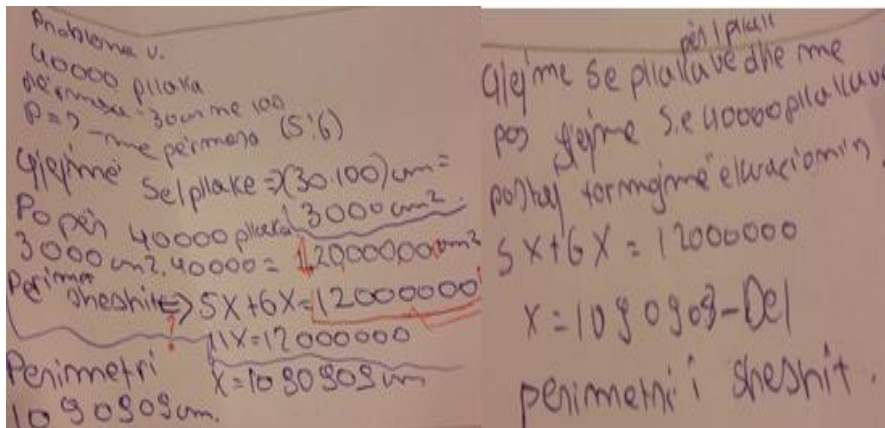 Problema v.
40000 pllaka
përmasa - 30cm me 100
P=? - me përmasa (5:6)
Gjejmë S e 1 pllake =>(30.100)cm =
3000cm².
Po për 40000 pllaka
3000 cm².40000 = 120000000cm²
Perimet sheshit => 5X+6X=12000000
?
11X=12000000
X=1090909cm
Perimetri
1090909cm.
për 1 pllakë
Gjejmë S e pllakave dhe me
pas gjejmë S.e 40000 pllakave
pastaj formojmë ekuacionin
5X+6X=12000000
X=1090909-Del
perimetri i sheshit.